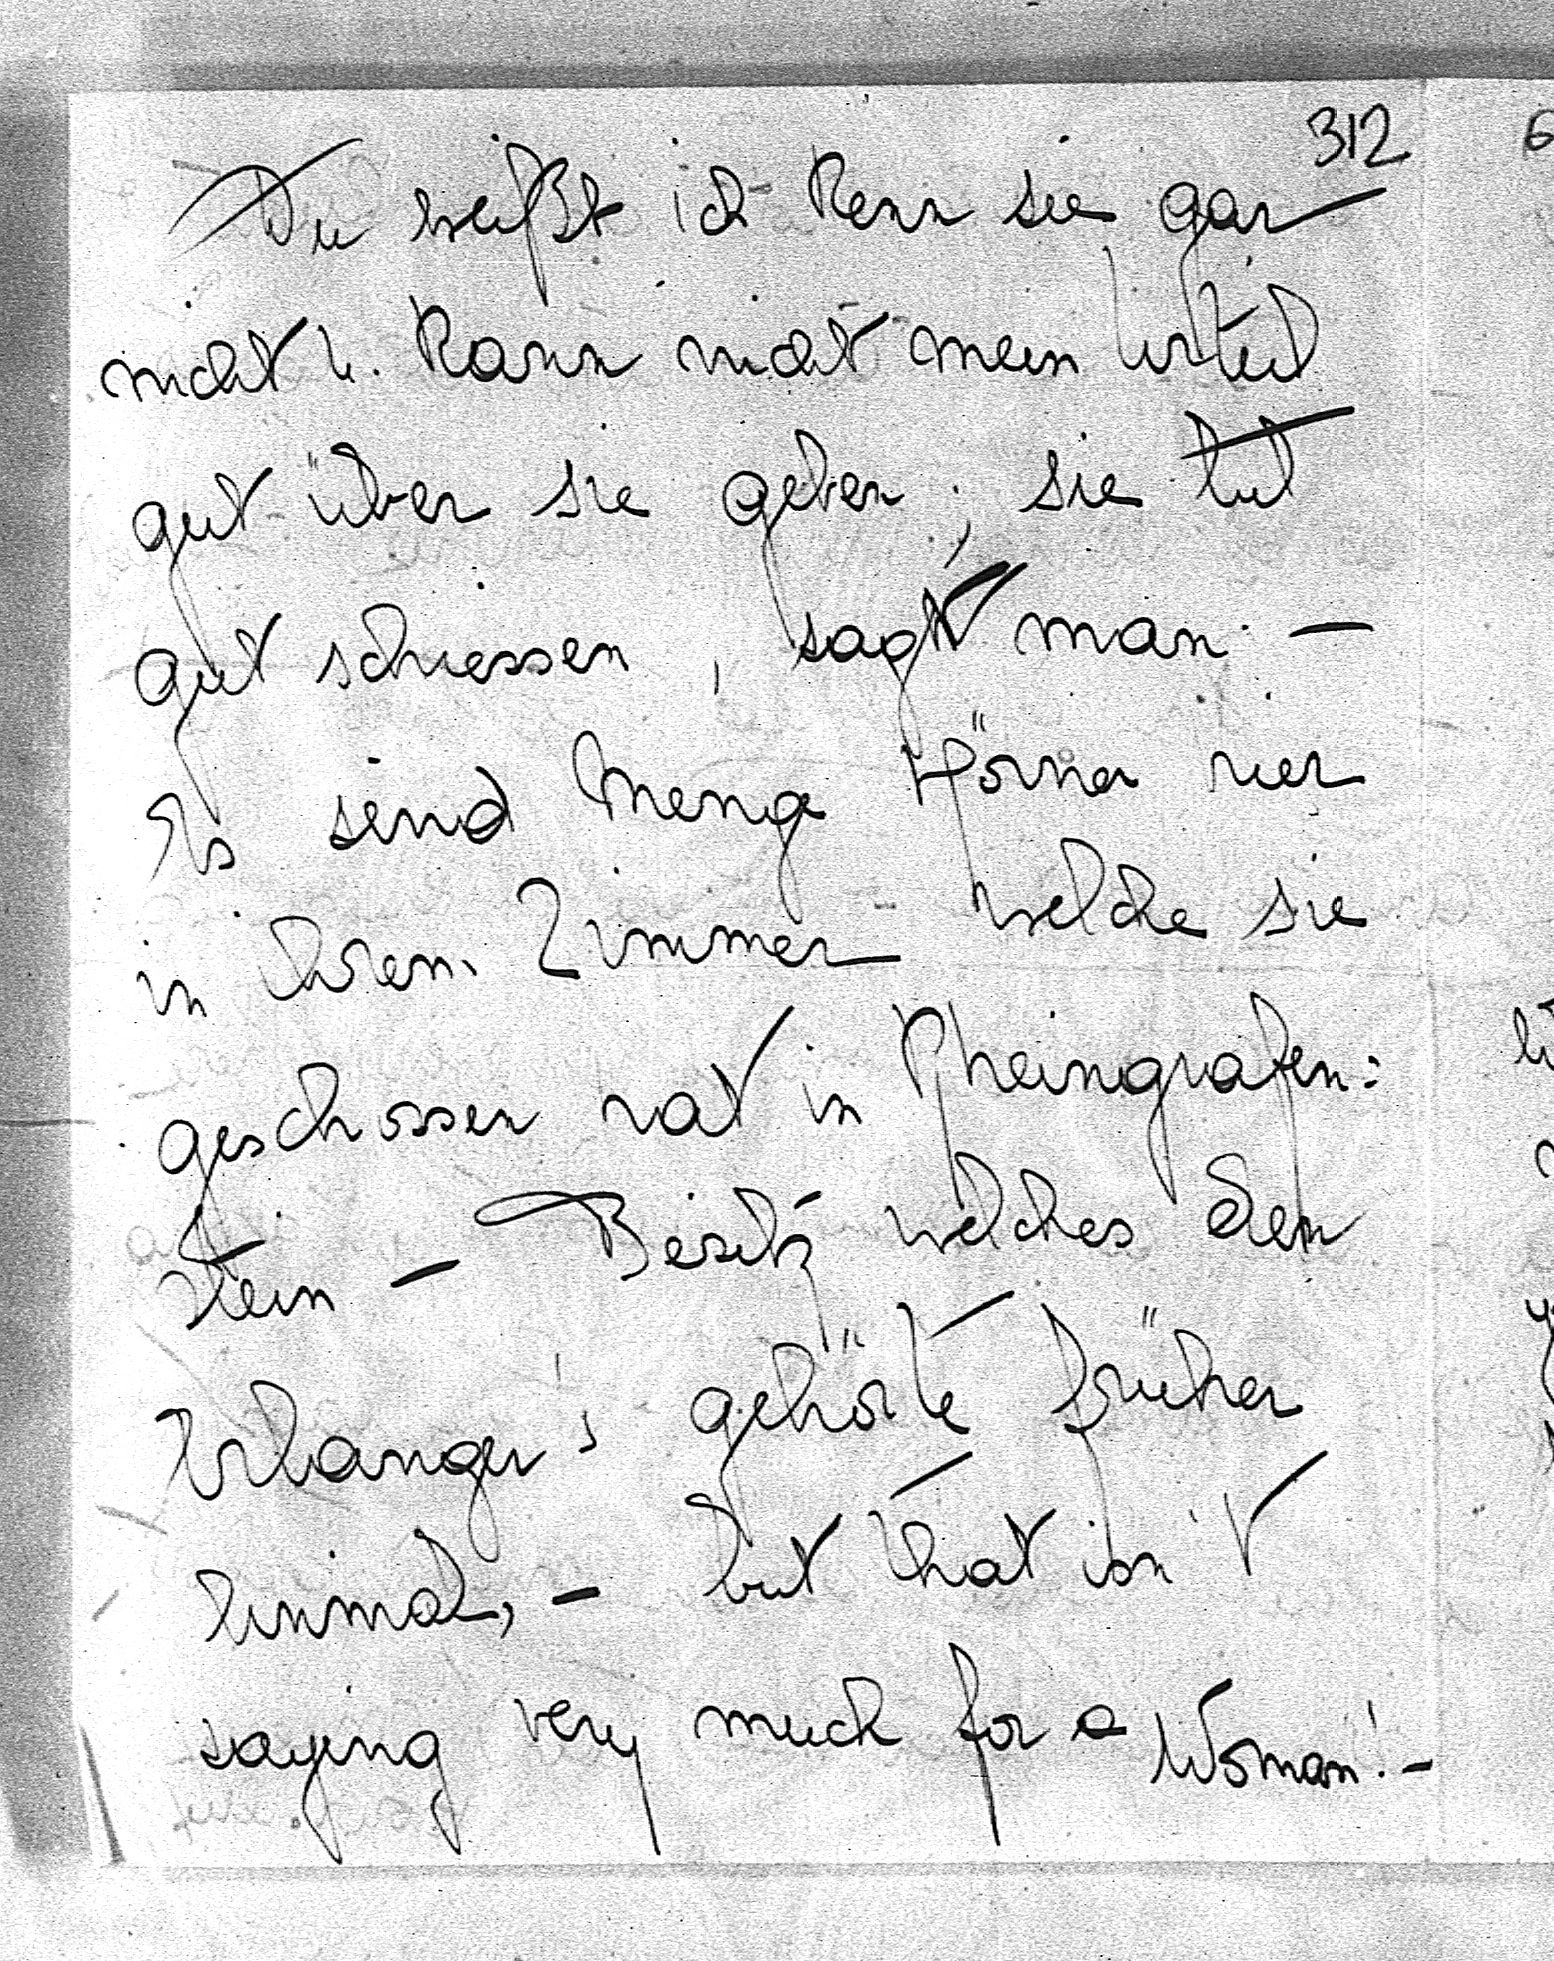 312
Du weißt ich kenn sie gar
nicht u. kann nicht mein Urteil
gut über sie geben; sie tut
gut schiessen, sagt man. —
Es sind Menge Hörner hier
in ihrem Zimmer welche sie
geschossen hat in Rheingrafen=
stein — Besitz welches den
Erlanger's gehörte früher
einmal, — but that isn't
saying very much for a Woman! -